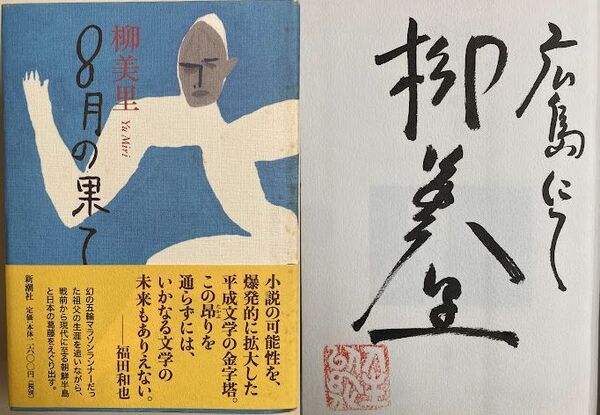 柳美里
Yu Miri
8月の果て
小説の可能性を、
爆発的に拡大した
平成文学の金字塔。
この昂りを
通らずには、
いかなる文学の
未来もありえない。
——福田和也
幻の五輪マラソンランナーだっ
た祖父の生涯を追いながら、
戦前から現代に至る朝鮮半島
と日本の葛藤をえぐり出す。
新潮社
定価:本体二、六〇〇円(税別)
広島にて
柳美里